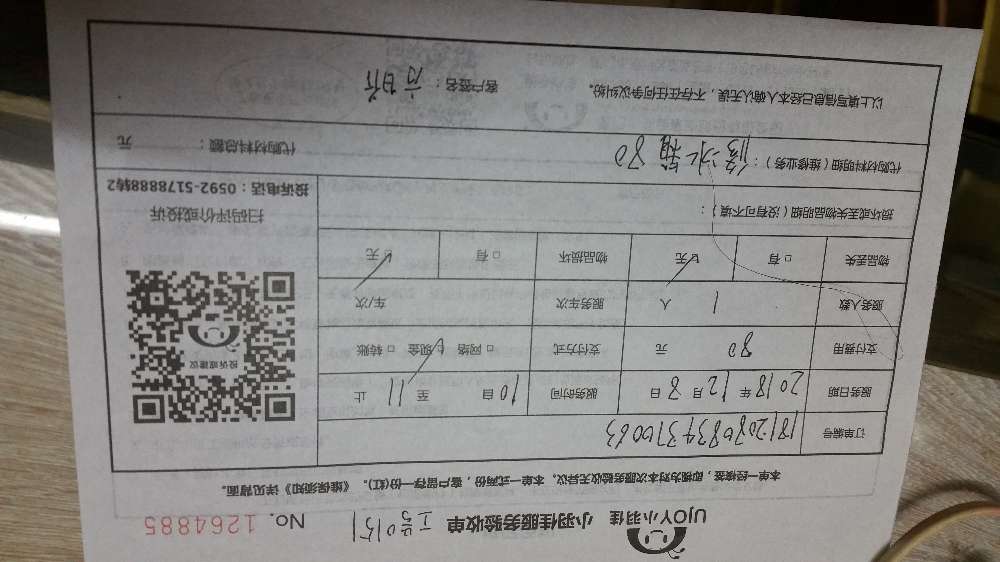 UJOY小羽佳 小羽佳服务验收单 工号0151 No. 1264885
本单一经接签，即视为对本次服务验收无异议。本单一式两份，客户留存一份(红)。《维保须知》详见背面。
订单编号 18120808343710063
服务日期 2018年12月8日 服务时间 10自 至11 止
支付费用 80 元 支付方式 □网络 ☑现金 □转账
服务人数 1 人 服务车次 车/次
物品丢失 □有 ☑无 物品损坏 □有 ☑无
损坏或丢失物品明细（没有可不填）：
投诉或建议
扫码评价或投诉
投诉电话：0592-5178888转2
代购材料明细（维修业务）： 修冰箱 80 代购材料总额： 元
以上填写信息已经本人确认无误，不存在任何争议纠纷。 客户签名：